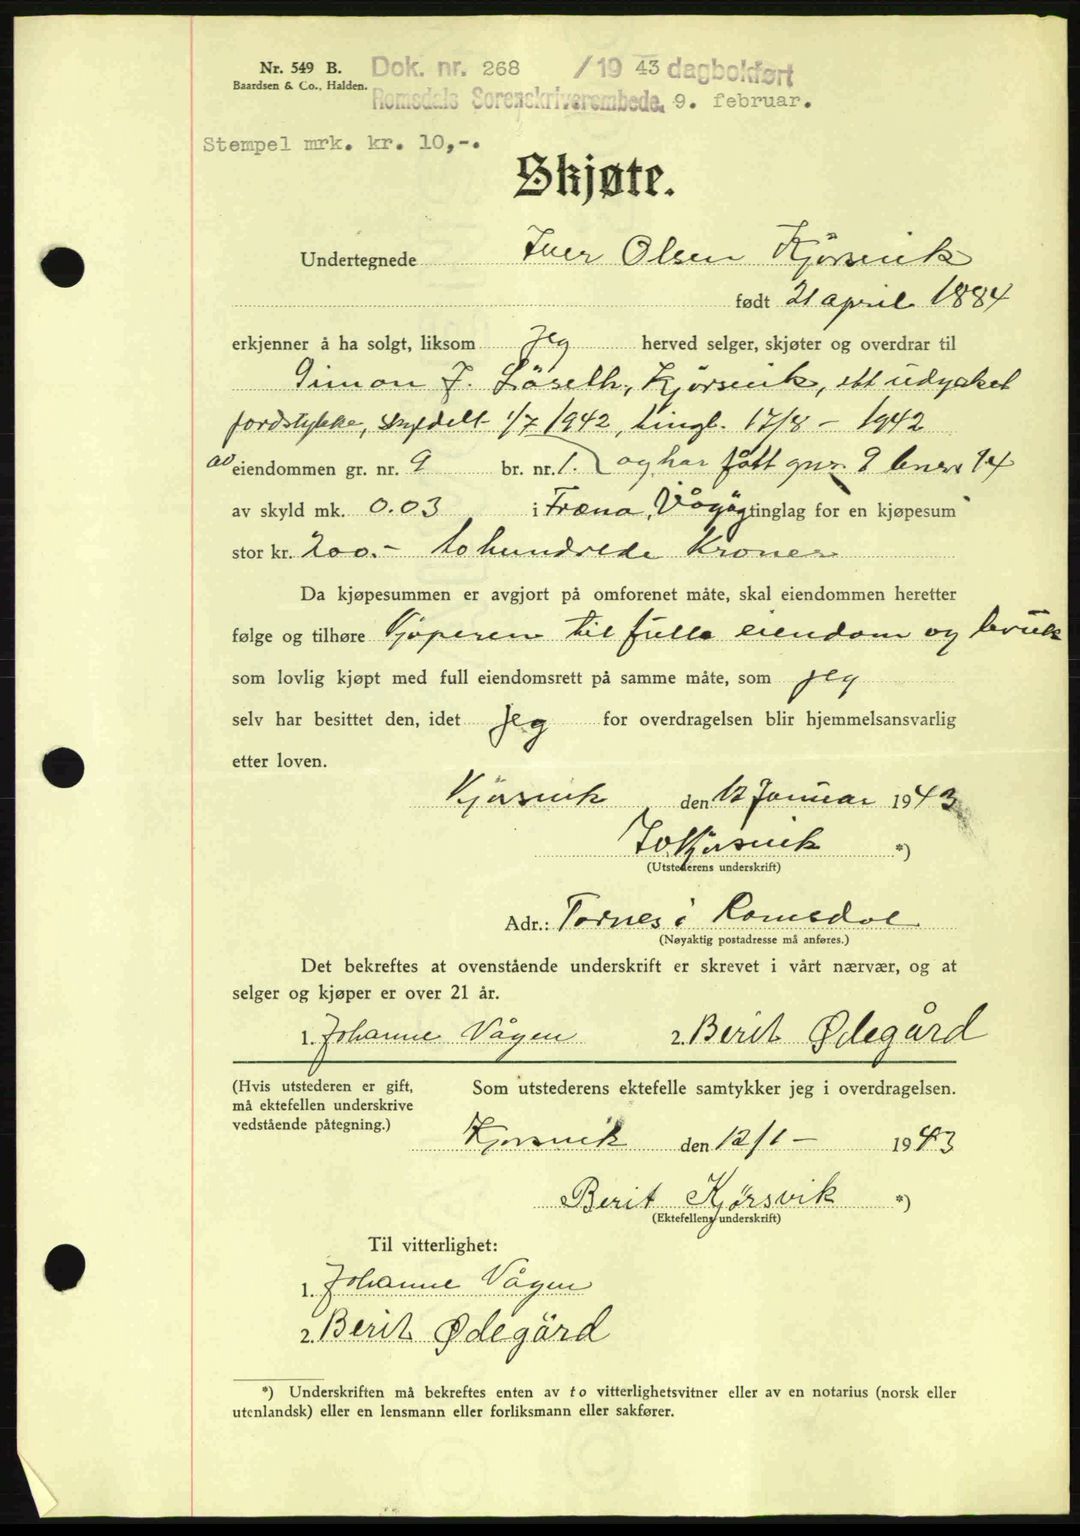 Nr. 549 B. Dok. nr. 268 /19 43 dagbokført
Baardsen & Co., Halden. Romsdals Sorenskriverembede, 9. februar.
Stempel mrk. kr. 10,-.
Skjøte.
Undertegnede Iver Olsen Kjörsvik
født 21 april 1884
erkjenner å ha solgt, liksom jeg herved selger, skjøter og overdrar til
Simon J. Löseth, Kjörsvik, ett udyrket
jordstykke, skyldelt 1/7 1942, tingl. 17/8 - 1942
av eiendommen gr. nr. 9 br. nr. 1. og har fått gnr. 9 bnr. 14
av skyld mk. 0.03 i Fræna, Vågöy tinglag for en kjøpesum
stor kr. 200.- tohundrede kroner
Da kjøpesummen er avgjort på omforenet måte, skal eiendommen heretter
følge og tilhøre Kjöperen til fulla eiendom og bruk
som lovlig kjøpt med full eiendomsrett på samme måte, som jeg
selv har besittet den, idet jeg for overdragelsen blir hjemmelsansvarlig
etter loven.
Kjörsvik den 12 Januar 1943
I O Kjörsvik *)
(Utstederens underskrift)
Adr.: Tornes i Romsdal
(Nøyaktig postadresse må anføres.)
Det bekreftes at ovenstående underskrift er skrevet i vårt nærvær, og at
selger og kjøper er over 21 år.
1. Johanne Vågen 2. Berit Ødegård
(Hvis utstederen er gift, Som utstederens ektefelle samtykker jeg i overdragelsen.
må ektefellen underskrive
vedstående påtegning.)
Kjorsvik den 12/1 - 1943
Berit Kjørsvik *)
(Ektefellens underskrift)
Til vitterlighet:
1. Johanne Vågen
2. Berit Ødegård
*) Underskriften må bekreftes enten av to vitterlighetsvitner eller av en notarius (norsk eller
utenlandsk) eller en lensmann eller forliksmann eller sakfører.